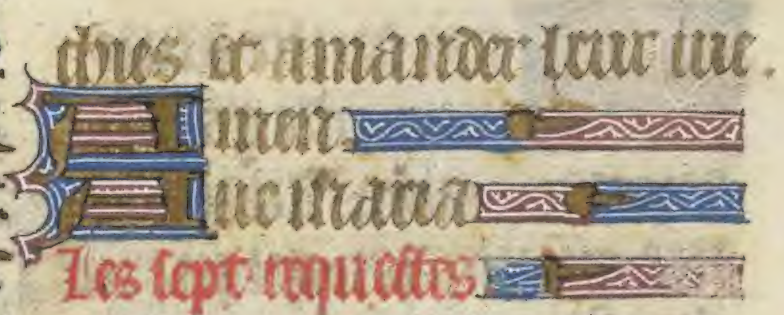 chies et amander leur vie.
Amen.
Aue maria
Les sept requestes